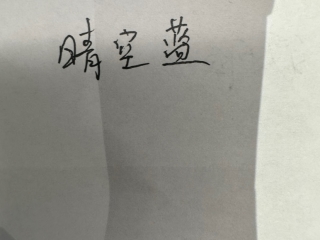 晴空蓝